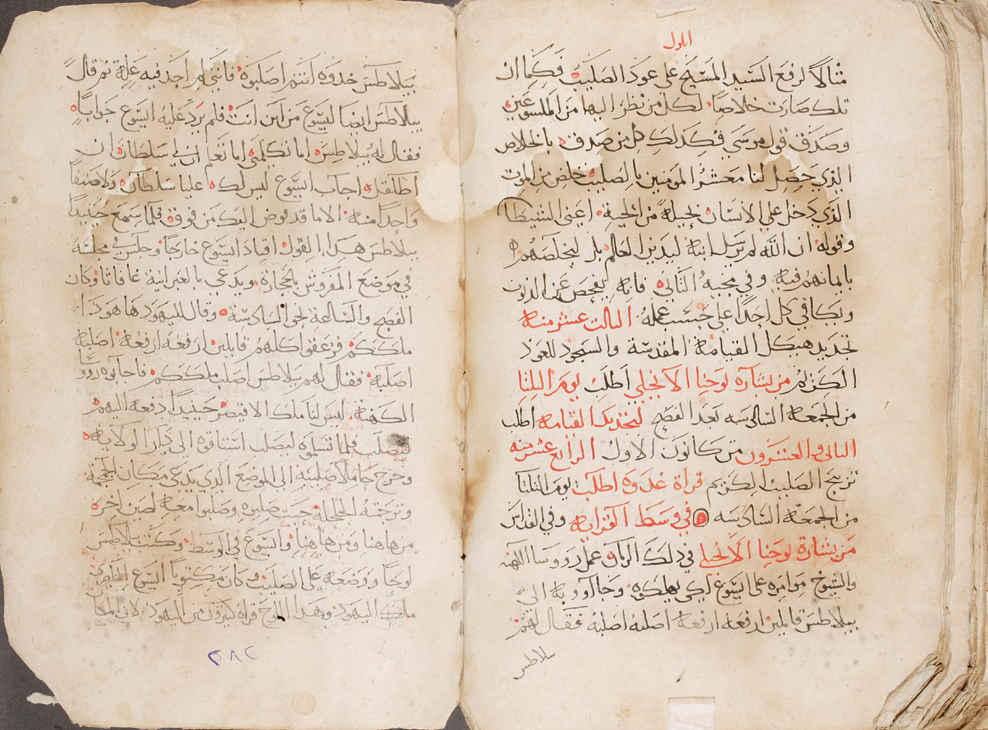 ايلول
مثالاً لرفع السيد المسيح على عود الصليب فكما ان
تلك صارت خلاصاً لكل من نظر اليها من الملسوعين
وصدق قول موسى فكدلك كل من صدق به بالخلاص
الذي حصل لنا معشر المومنين بالصليب خلص من الموت
الذي دخل على الانسان بحيلة من الحية اعني الشيطان
وقوله ان الله لم يرسل ابنه ليدين العالم بل ليخلصهم
بايمانهم فيه وفي مجيه التاني فانه يفحص عن الديون
ويكافي كل احداً على حسب عمله الثالث عشر منه
تجديد هيكل القيامة المقدسة والسجود للعود
الكريم من بشارة يوحنا الانجيلي اطلب يوم التلتا
من الجمعة السادسه بعد الفصح لتجديد القيامة اطلب
التاني والعشرون من كانون الاول الرابع عشر منه
الصليب الكريم قراة غدوة اطلب يوم التلتا
من الجمعة السادسه في وسط القراية وفي القداس
من بشارة يوحنا الانجيلي في دلك الزمان عمل رووسا الكهنه
والشيوخ موامره على ايسوع لكي يهلكوه وجااوو به الى
بيلاطس قايلين ارفعه ارفعه اصلبه اصلبه فقال لهم
بيلاطس
بيلاطس خدوه انتم اصلبوه فانني لم اجد فيه علة تم قال
بيلاطس ايضا ليسوع من اين انت فلم يرد عليه ايسوع جواباً
فقال له بيلاطس اما تكلمني اما تعلم ان لي سلطان ان
اطلقك اجاب ايسوع ليس لك عليا سلطان ولا صنفاً
واحداً منه الا ما قد فوض اليك من فوق فلما سمع حينيداً
بيلاطس هدا القول اقتاد ايسوع خارجاً وجلس في مجلسه
في موضع المفروش بالحجارة ويدعى بالعبرانية غافاتا وكان
الفصح والساعة نحو السادسة وقال لليهود هاهودا
ملككم فزعقوا كلهم قايلين ارفعه ارفعه اصلبه
اصلبه فقال لهم بيلاطس اصلب ملككم فاجابوه روو
الكهنة ليس لنا ملك الا قيصر حينيداً دفعه اليهم
ليصلب فلما تسلموه ليصلب استاقوه الى دار الولاية
وخرج حاملاً صليبه الى الموضع الدي يدعى مكان الجمجمة
وترجمته الجلجلة حيت صلبوه وصلبوا معه لصين اخر
من هاهنا ومن هاهنا وايسوع في الوسط وكتب بيلاطس
لوحاً ووضعه على الصليب وكان مكتوباً ايسوع الناصري
ملك اليهود وهدا اللوح قراه كتيرون من اليهود لان المكا
٢٨٢